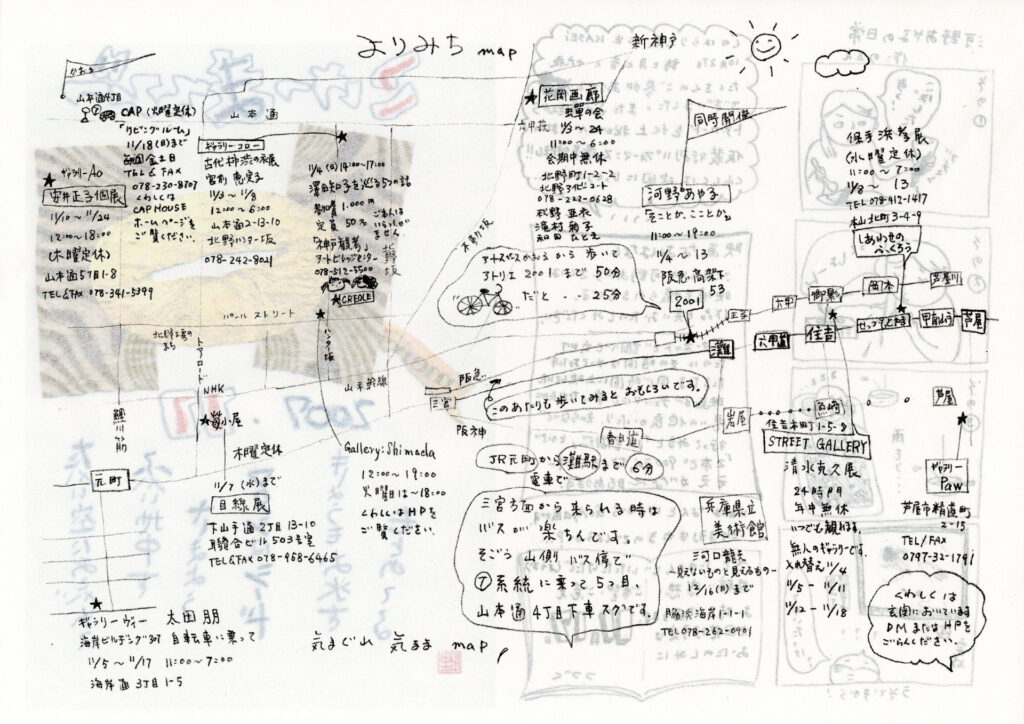 よりみち map
新神戸
かおる
山本通4丁目
⑦ CAP (火曜定休)
「リビングルーム」
11/18(日)まで
毎週金土日
TEL & FAX
078-230-8707
くわしくは
CAP HOUSE
ホームページを
ご覧ください。
ギャラリーAo
安井正子個展
11/10〜11/24
12:00〜18:00
(木曜定休)
山本通5丁目1-8
TEL&FAX 078-341-5399
山本通
ギャラリー・フロー
古代柿渋の衣展
11/3〜11/8
12:00〜6:00
山本通2-13-10
北野ハンター坂
078-242-8021
11/4(日)14:00〜17:00
澤田知子を巡る5つの話
参加費1.000円
定員50名
ごれいはいらっしゃいません
「神戸観考」
アートビレッジセンター
078-512-5500
CREOLE
北野坂
不動坂
ハンター坂
パールストリート
北野工房のまち
トアロード
NHK
山手幹線
鯉川筋
元町
三宮
阪急
阪神
花岡画廊
蝉の会
六甲荘
11/3〜24
11:00〜6:00
会期中無休
北野町1-2-2
北野アビニュート
078-242-0628
萩野 亜衣
滝村 菊子
和田 ひとえ
同時開催
河野あや子
「そことか、こことか」
11:00〜19:00
11/4〜13
阪急高架下
53
2001
アートスペースかおるから歩いて
アトリエ2001まで50分
だと・・25分
王子
灘
六甲
六甲道
御影
住吉
岡本
芦屋川
セッツ本山
甲南山手
芦屋
保手浜孝展
(水曜定休)
11:00〜7:00
11/8〜13
TEL 078-412-1417
本山北町3-4-9
しあわせの
ぺんぐろう
このあたりも歩いてみるとおもしろいです。
岩屋
魚崎
芦屋
住吉本町1-5-8
STREET GALLERY
清水克久展
24時間
年中無休
いつでも観れる、
無人のギャラリーです。
入れ替え11/4
11/5〜11/11
11/12〜11/18
ギャラリー
Paw
芦屋市精道町
2-15
TEL/FAX
0797-32-1791
くわしくは
玄関においています
DMまたはHPを
ごらんください。
春日道
JR元町から灘駅まで6分
電車で
三宮方面から来られる時は
バスが楽ちんです。
そごう山側バス停で
⑦系統に乗って5つ目、
山本通4丁目下車スグです。
兵庫県立
美術館
河口龍夫
-見えないものと見えるもの-
12/16(日)まで
脇浜海岸1-1-1
TEL 078-262-0901
筍小屋
木曜定休
11/7(水)まで
目線展
下山手通2丁目13-10
TEL&FAX 078-958-6465
Gallery:Shimada
12:00〜19:00
火曜日は〜18:00
くわしくはHPを
ご覧ください。
ギャラリーヴィー 太田朋
海岸ビルヂング307 自転車に乗って
11/5〜11/17 11:00〜7:00
海岸通3丁目1-5
気まぐ山 気まま map